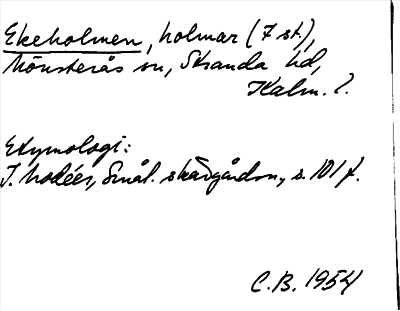 Ekeholmen, holmar (7 st.),
Mönsterås sn, Stranda hd,
Kalm. l.
Etymologi:
J. Modéer, Smål. skärgården, s. 101 f.
C.B. 1954